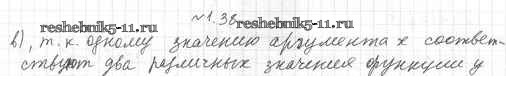 №1.38
reshebnik5-11.ru reshebnik5-11.ru
в), т.к. одному значению аргумента x соответ-
ствуют два различных значения функции y